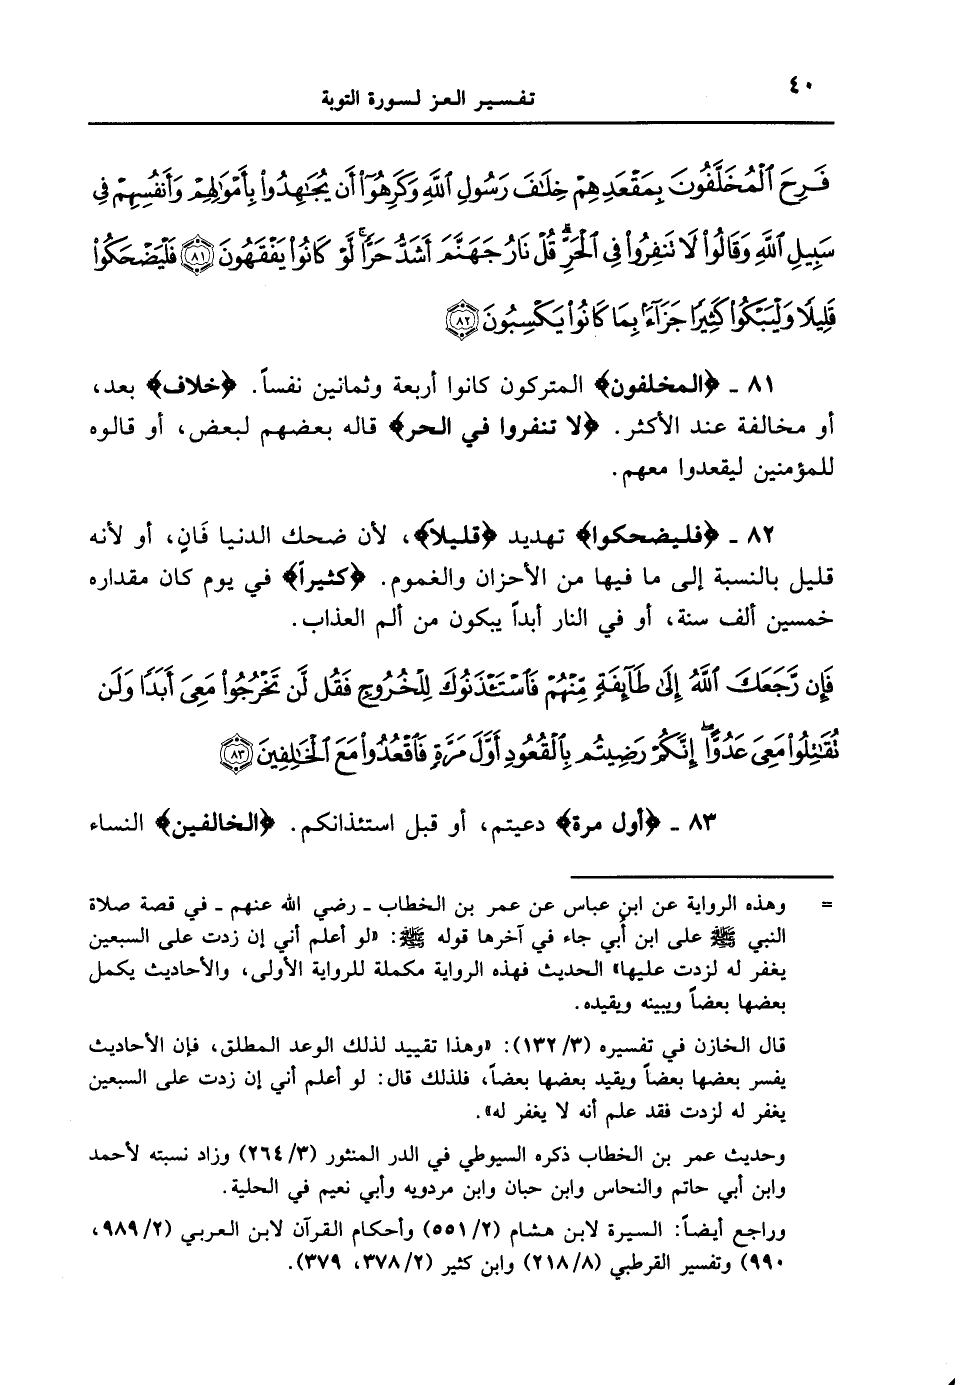 ٤٠
تفسير العز لسورة التوبة
فَرِحَ ٱلْمُخَلَّفُونَ بِمَقْعَدِهِمْ خِلَٰفَ رَسُولِ ٱللَّهِ وَكَرِهُوٓا۟ أَن يُجَٰهِدُوا۟ بِأَمْوَٰلِهِمْ وَأَنفُسِهِمْ فِى
سَبِيلِ ٱللَّهِ وَقَالُوا۟ لَا تَنفِرُوا۟ فِى ٱلْحَرِّ ۗ قُلْ نَارُ جَهَنَّمَ أَشَدُّ حَرًّا ۚ لَّوْ كَانُوا۟ يَفْقَهُونَ ٨١ فَلْيَضْحَكُوا۟
قَلِيلًا وَلْيَبْكُوا۟ كَثِيرًا جَزَآءًۢ بِمَا كَانُوا۟ يَكْسِبُونَ ٨٢
٨١ ـ ﴿المخلفون﴾ المتركون كانوا أربعة وثمانين نفساً. ﴿خلاف﴾ بعد،
أو مخالفة عند الأكثر. ﴿لا تنفروا في الحر﴾ قاله بعضهم لبعض، أو قالوه
للمؤمنين ليقعدوا معهم.
٨٢ ـ ﴿فليضحكوا﴾ تهديد ﴿قليلاً﴾، لأن ضحك الدنيا فَانٍ، أو لأنه
قليل بالنسبة إلى ما فيها من الأحزان والغموم. ﴿كثيراً﴾ في يوم كان مقداره
خمسين ألف سنة، أو في النار أبداً يبكون من ألم العذاب.
فَإِن رَّجَعَكَ ٱللَّهُ إِلَىٰ طَآئِفَةٍ مِّنْهُمْ فَٱسْتَـْٔذَنُوكَ لِلْخُرُوجِ فَقُل لَّن تَخْرُجُوا۟ مَعِىَ أَبَدًا وَلَن
تُقَٰتِلُوا۟ مَعِىَ عَدُوًّا ۖ إِنَّكُمْ رَضِيتُم بِٱلْقُعُودِ أَوَّلَ مَرَّةٍ فَٱقْعُدُوا۟ مَعَ ٱلْخَٰلِفِينَ ٨٣
٨٣ ـ ﴿أول مرة﴾ دعيتم، أو قبل استئذانكم. ﴿الخالفين﴾ النساء
= وهذه الرواية عن ابن عباس عن عمر بن الخطاب ـ رضي الله عنهم ـ في قصة صلاة
النبي ﷺ على ابن أُبي جاء في آخرها قوله ﷺ: «لو أعلم أني إن زدت على السبعين
يغفر له لزدت عليها» الحديث فهذه الرواية مكملة للرواية الأولى، والأحاديث يكمل
بعضها بعضاً ويبينه ويقيده.
قال الخازن في تفسيره (٣/١٣٢): «وهذا تقييد لذلك الوعد المطلق، فإن الأحاديث
يفسر بعضها بعضاً ويقيد بعضها بعضاً، فلذلك قال: لو أعلم أني إن زدت على السبعين
يغفر له لزدت فقد علم أنه لا يغفر له».
وحديث عمر بن الخطاب ذكره السيوطي في الدر المنثور (٣/٢٦٤) وزاد نسبته لأحمد
وابن أبي حاتم والنحاس وابن حبان وابن مردويه وأبي نعيم في الحلية.
وراجع أيضاً: السيرة لابن هشام (٢/٥٥١) وأحكام القرآن لابن العربي (٢/٩٨٩،
٩٩٠) وتفسير القرطبي (٨/٢١٨) وابن كثير (٢/٣٧٨، ٣٧٩).